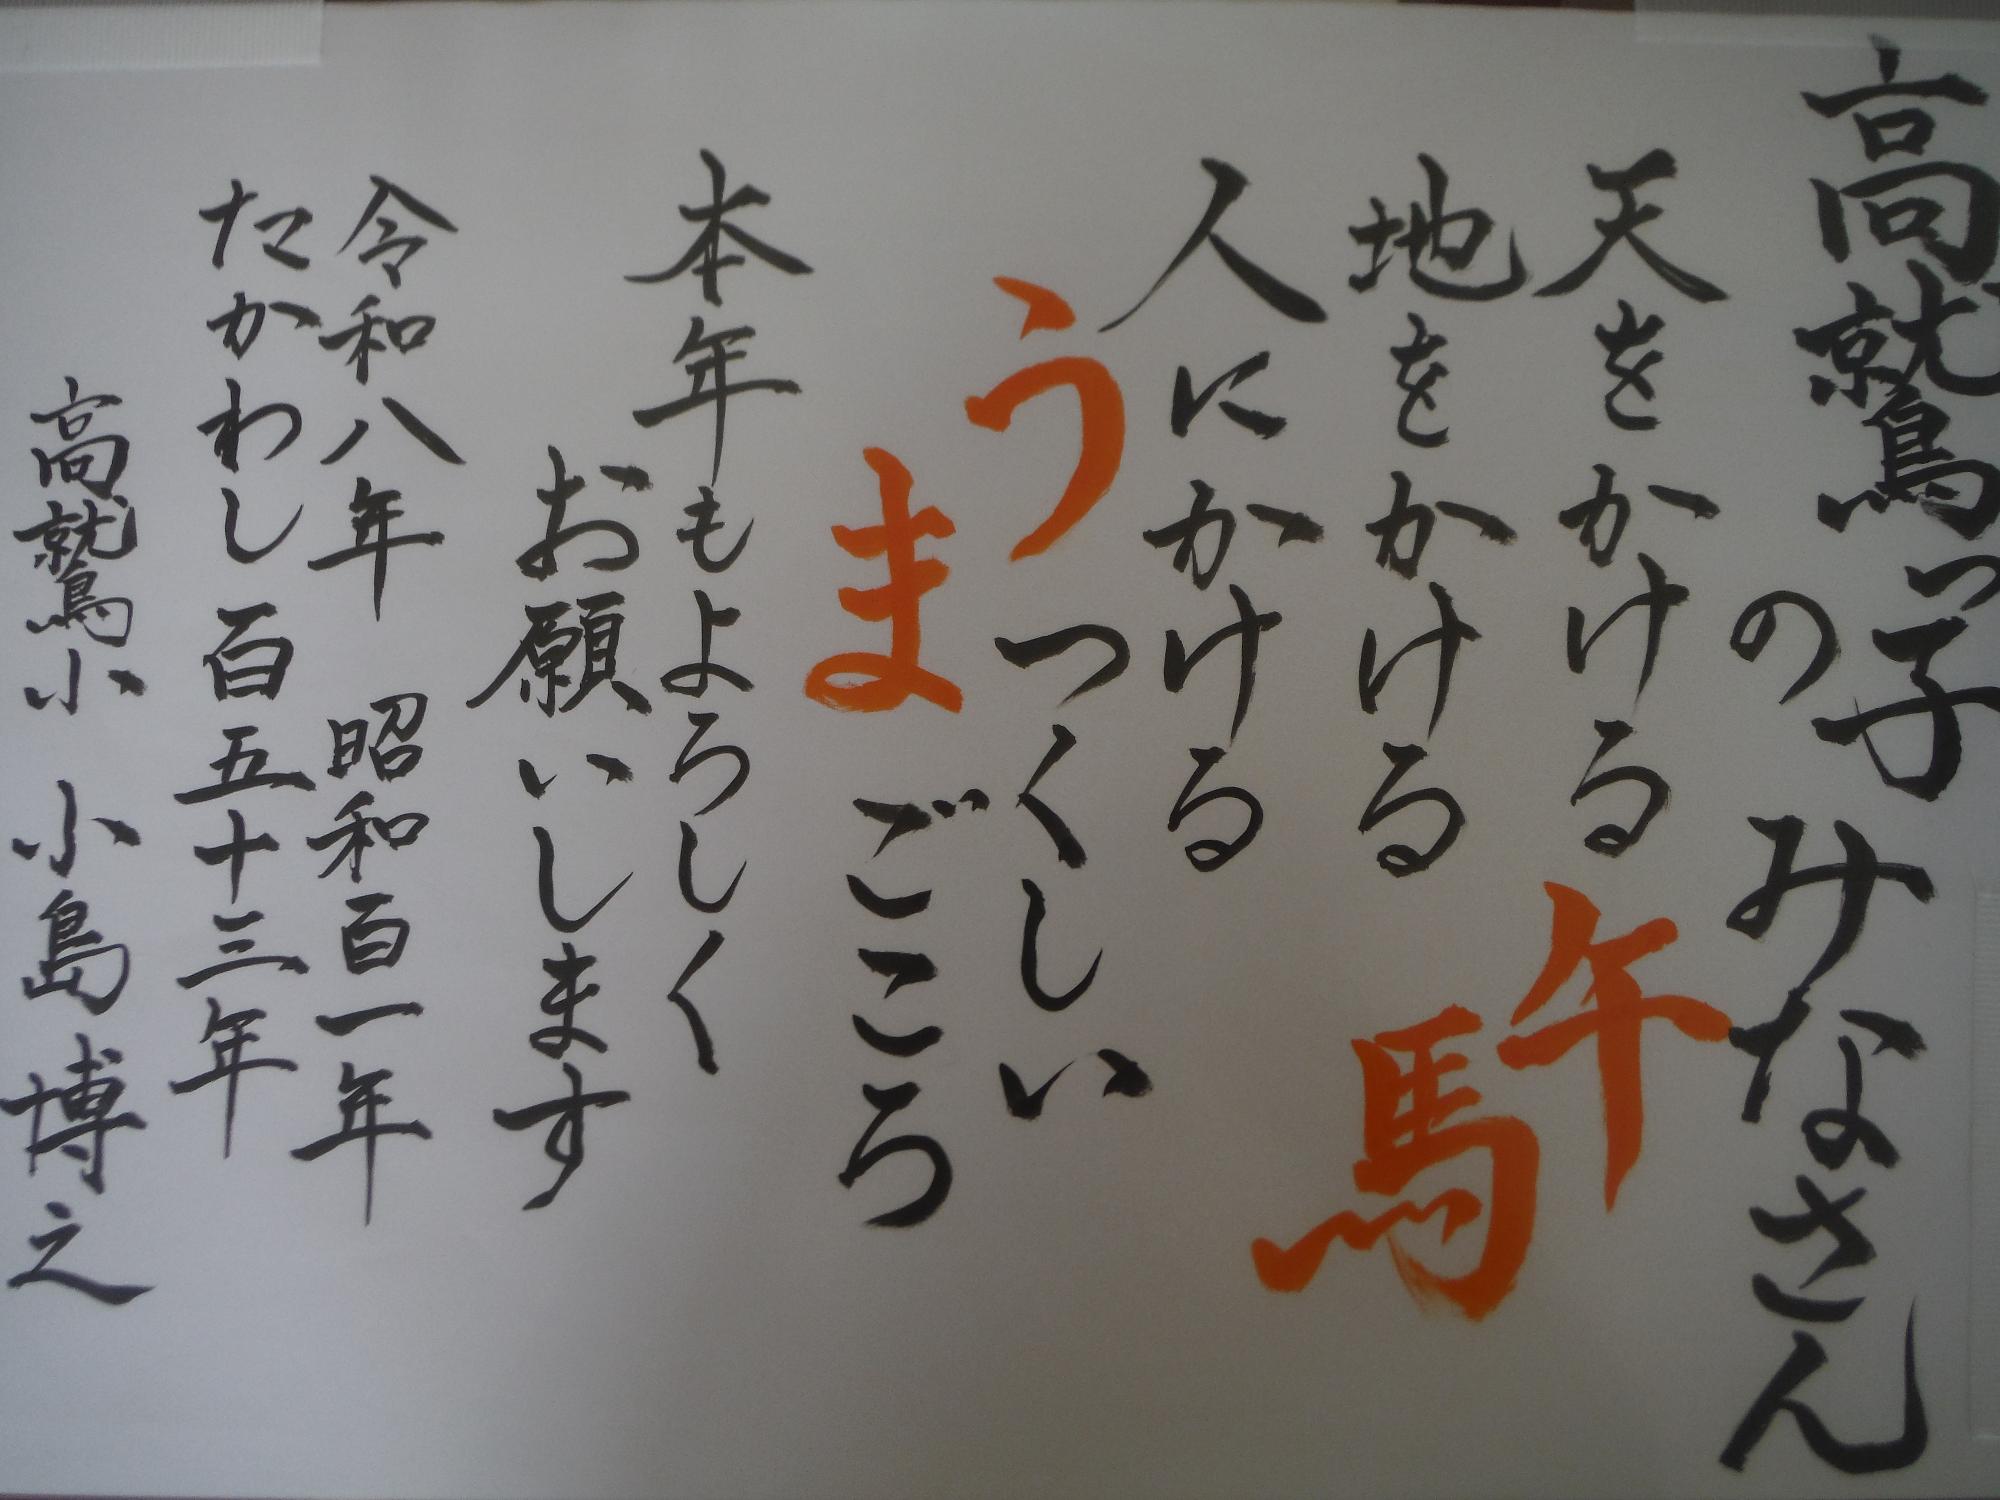 高鷲っ子
のみなさん
天をかける午
地をかける馬
人にかける
うつくしい
まごころ
本年もよろしく
お願いします
令和八年　昭和百一年
たかわし百五十三年
高鷲小　小島博之